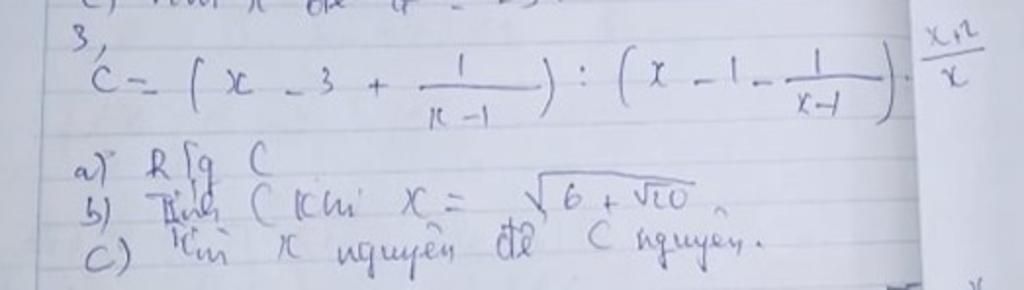 3,
C = ( x - 3 + 1/(x-1) ) : ( x - 1 - 1/(x-1) ) . (x+2)/x
a) R/g C
b) Tính C khi x = √(6 + √20)
c) Tìm x nguyên để C nguyên.